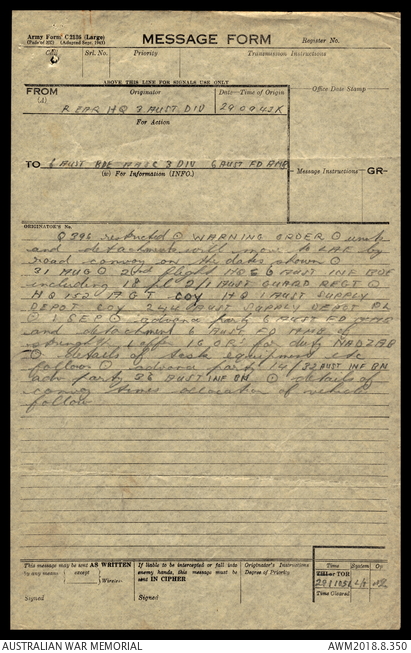 Army Form C2128 (Large)
(Pads of 25) (Adopted Sept. 1942)
MESSAGE FORM
Register No.
Srl. No.
Priority
Transmission Instructions
ABOVE THIS LINE FOR SIGNALS USE ONLY
FROM
(A)
Originator
Date-Time of Origin
Office Date Stamp
REAR HQ 3 AUST DIV
290942K
For Action
TO
6 AUST BDE AASC 3 DIV 6 AUST FD AMB
(w) For Information (INFO.)
Message Instructions
GR-
ORIGINATOR'S No.
Q396 restricted ⊙ WARNING ORDER ⊙ units
and detachments will move to LAE by
road convoy on the dates shown ⊙
31 AUG ⊙ 2nd flight HQ 6 AUST INF BDE
including 18 pl 2/1 AUST GUARD REGT ⊙
HQ 152 AGT COY HQ 1 AUST SUPPLY
DEPOT COY 244 AUST SUPPLY DEPOT PL
⊙ 1 SEP ⊙ advance party 6 AUST FD AMB
and detachment 6 AUST FD AMB
strength 1 offr 16 OR's for duty NADZAB
⊙ details of tests equipment etc
follow ⊙ advance party 14/32 AUST INF BN
adv party 36 AUST INF BN ⊙ details of
convoy times allocation of vehicles
follow
This message may be sent AS WRITTEN
by any means except Wireless
Signed
If liable to be intercepted or fall into
enemy hands, this message must be
sent IN CIPHER
Signed
Originator's Instructions
Degree of Priority
Time
System
Op
THI or TOR
Time Cleared
AUSTRALIAN WAR MEMORIAL
AWM2018.8.350